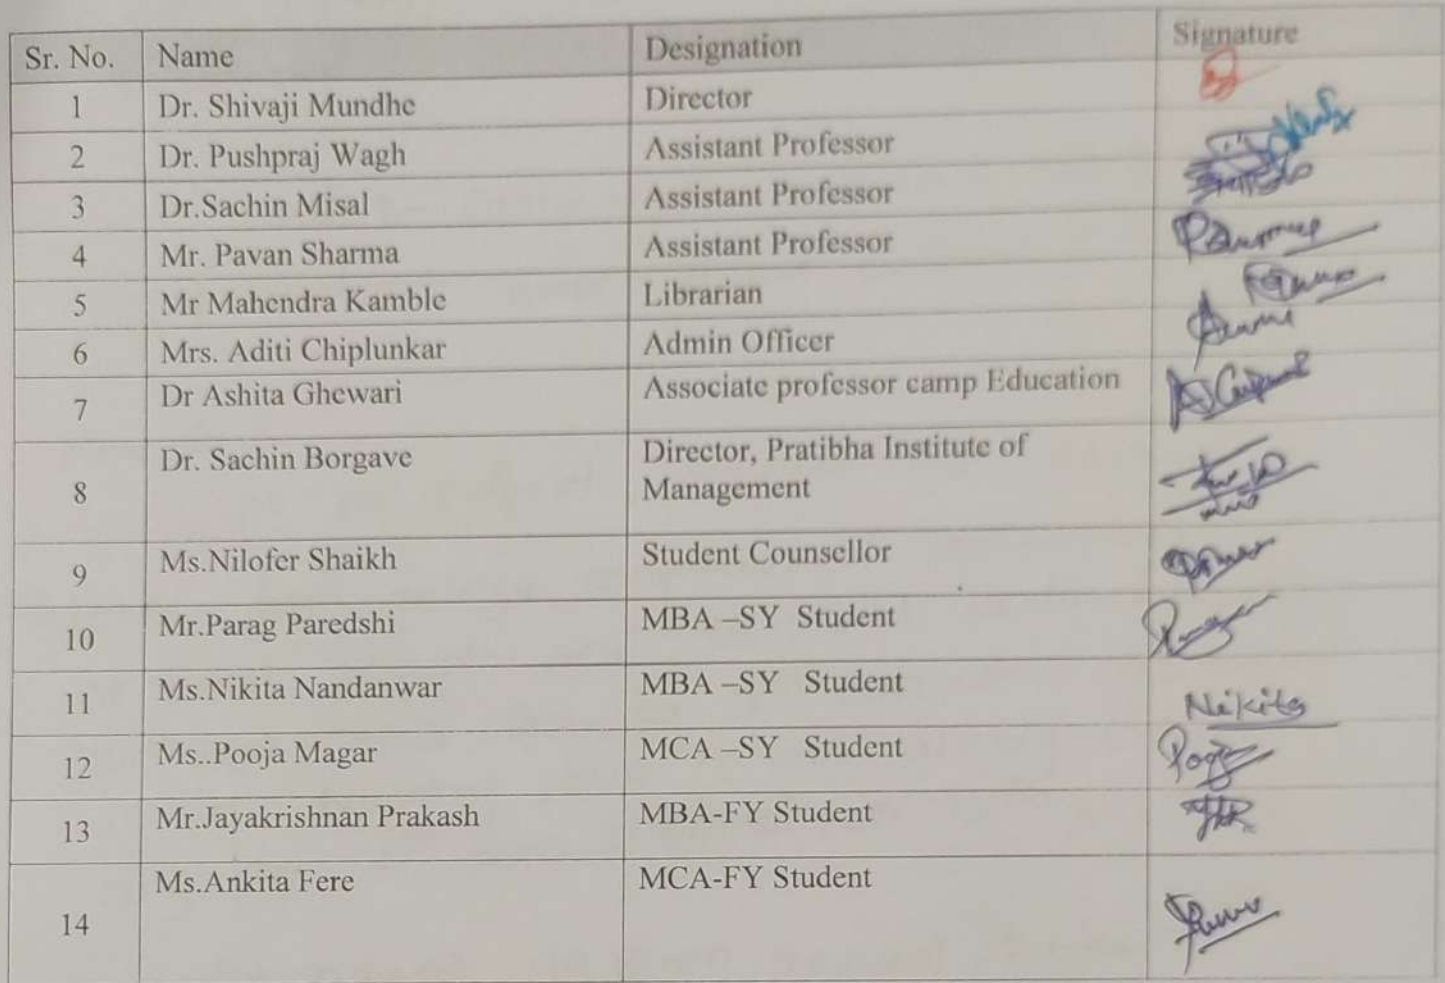 Sr. No. Name Designation Signature
1 Dr. Shivaji Mundhe Director
2 Dr. Pushpraj Wagh Assistant Professor
3 Dr.Sachin Misal Assistant Professor
4 Mr. Pavan Sharma Assistant Professor
5 Mr Mahendra Kamble Librarian
6 Mrs. Aditi Chiplunkar Admin Officer
7 Dr Ashita Ghewari Associate professor camp Education
8 Dr. Sachin Borgave Director, Pratibha Institute of
Management
9 Ms.Nilofer Shaikh Student Counsellor
10 Mr.Parag Paredshi MBA –SY Student
11 Ms.Nikita Nandanwar MBA –SY Student Nikita
12 Ms..Pooja Magar MCA –SY Student
13 Mr.Jayakrishnan Prakash MBA-FY Student
14 Ms.Ankita Fere MCA-FY Student